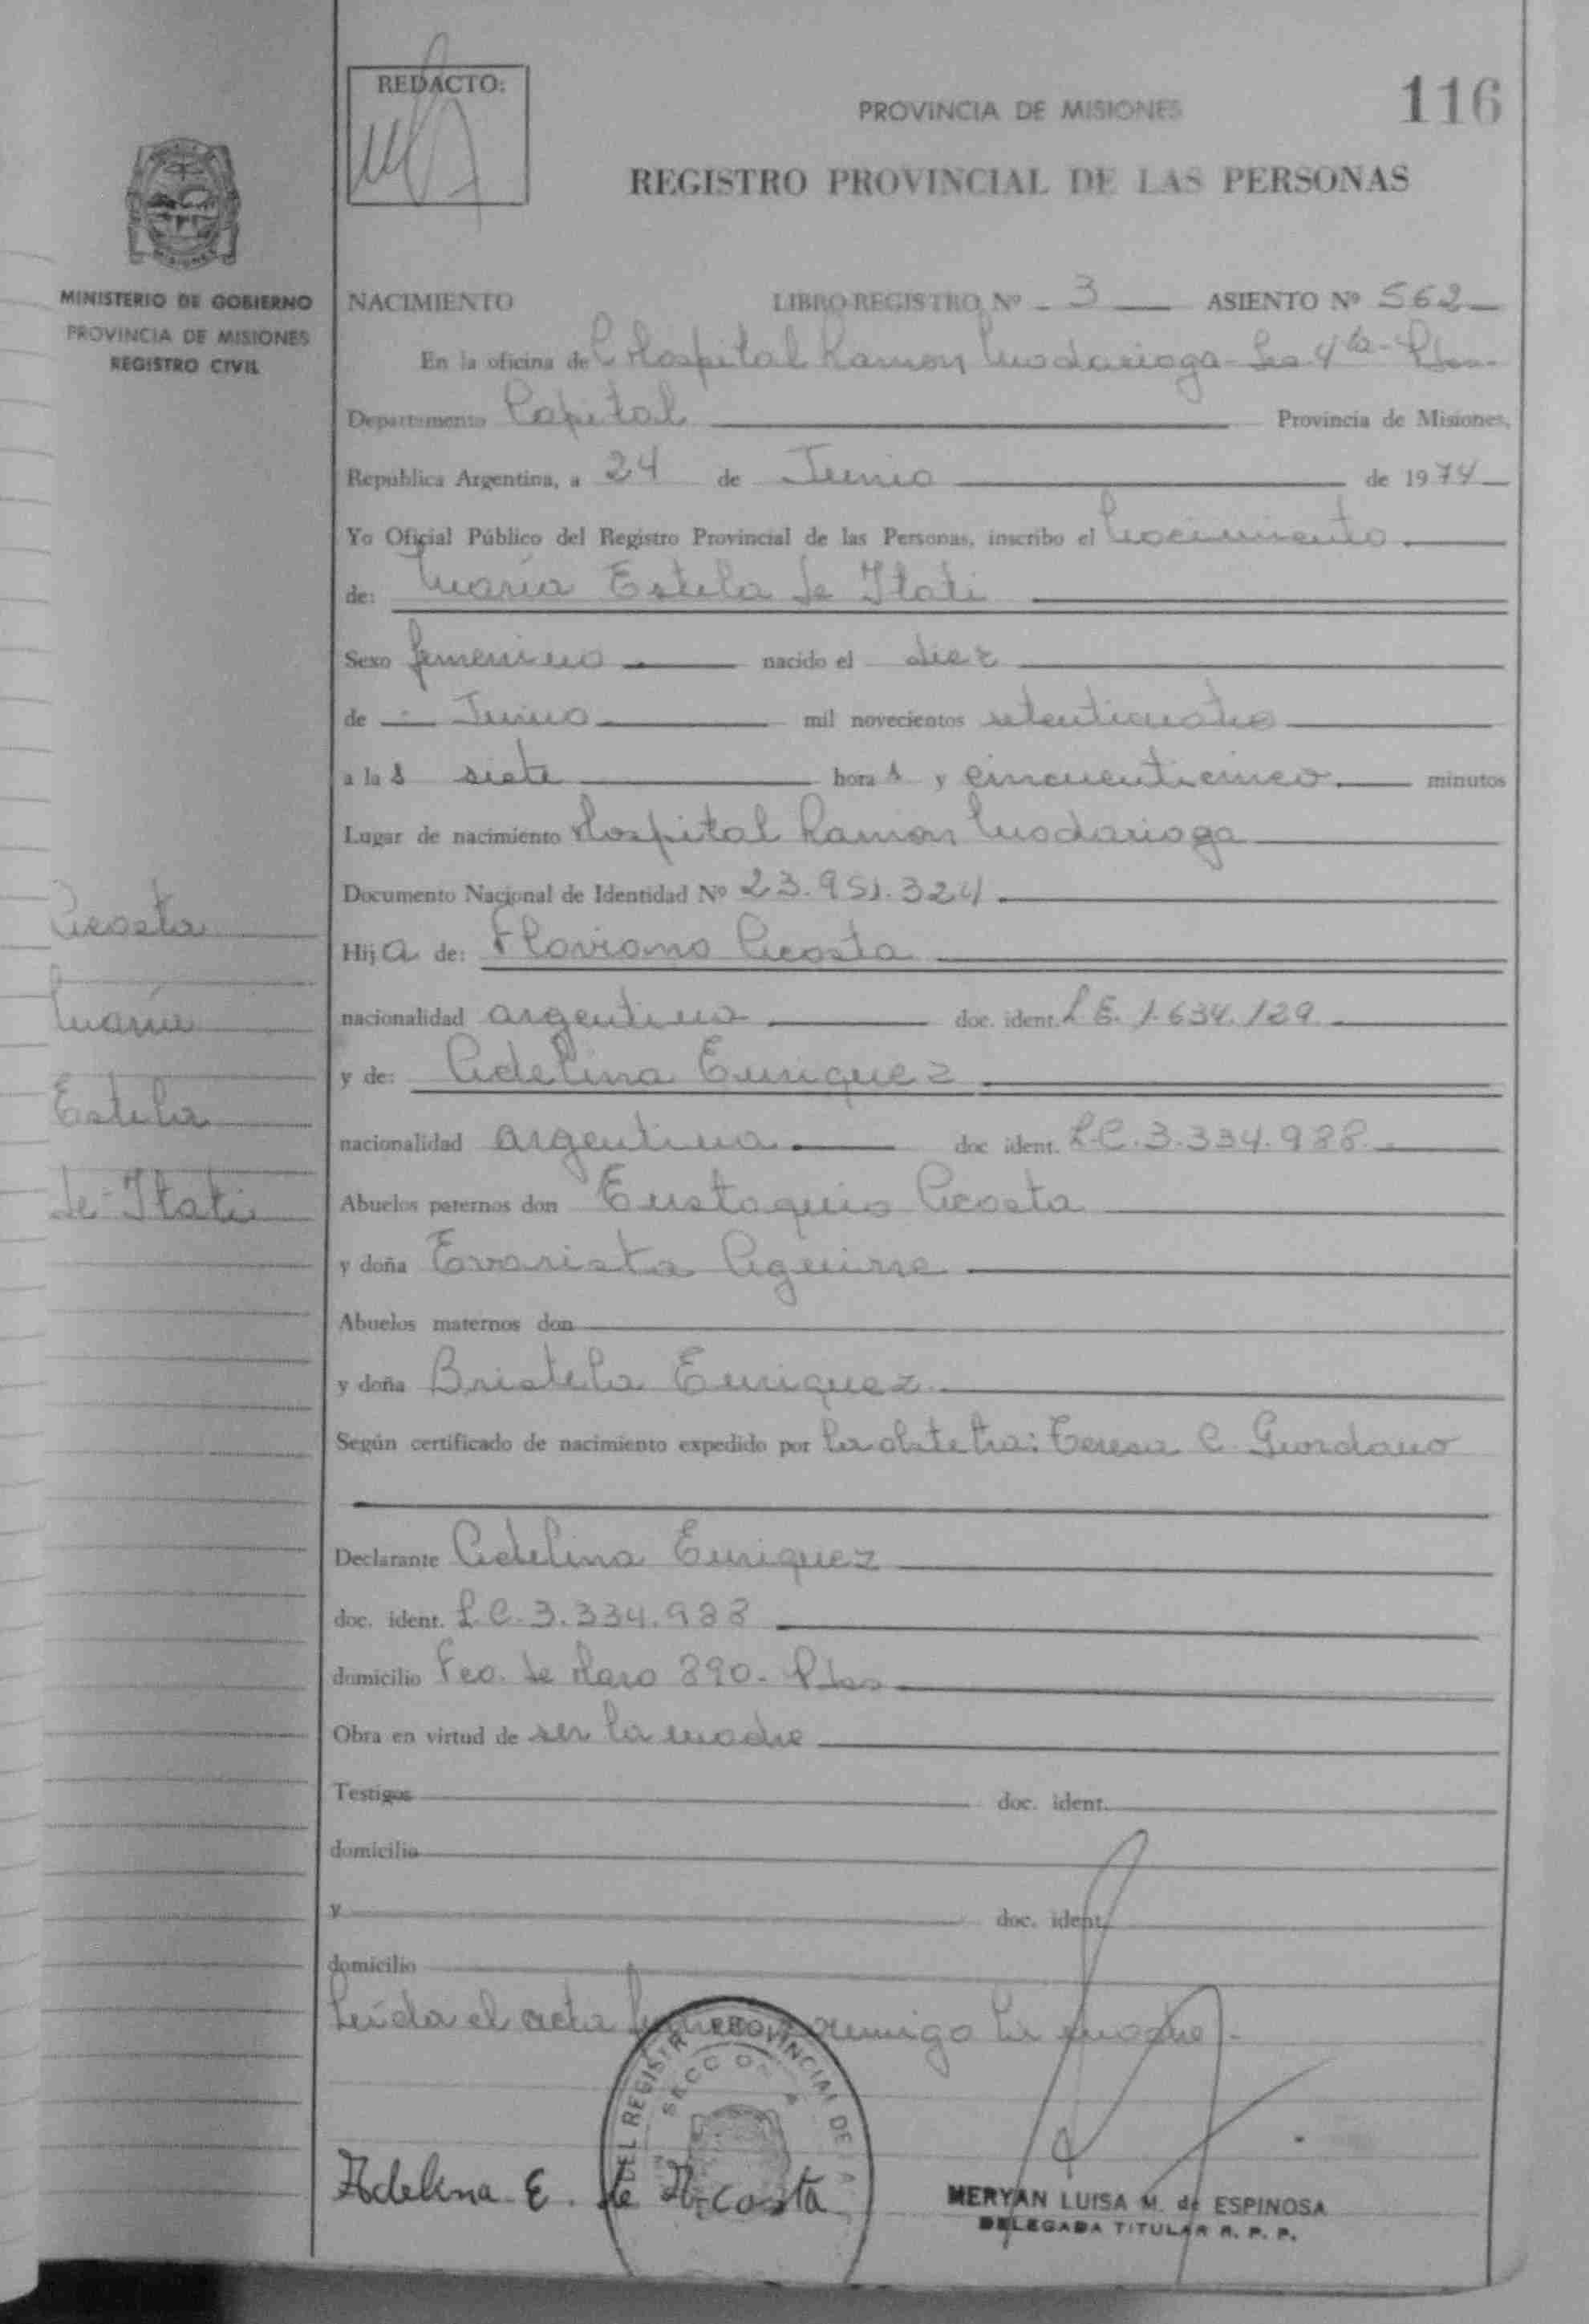 REDACTO:
PROVINCIA DE MISIONES
116
REGISTRO PROVINCIAL DE LAS PERSONAS
MINISTERIO DE GOBIERNO
PROVINCIA DE MISIONES
REGISTRO CIVIL
NACIMIENTO LIBRO-REGISTRO Nº 3 ASIENTO Nº 562
En la oficina de Hospital Ramon Madariaga - Sec 4ta - Pdas.
Departamento Capital Provincia de Misiones,
República Argentina, a 24 de Junio de 1974
Yo Oficial Público del Registro Provincial de las Personas, inscribo el Nacimiento
de: María Estela de Itati
Sexo femenino nacido el diez
de - Junio mil novecientos setenticuatro
a la s siete hora s y cincuenticinco minutos
Lugar de nacimiento Hospital Ramon Madariaga
Documento Nacional de Identidad Nº 23.951.324
Acosta
Hija de: Flaviano Acosta
María
nacionalidad argentina doc. ident. L E. 1.634.129
y de: Adelina Enriquez
Estela
nacionalidad argentina doc ident. L.C. 3.334.988.
de Itati
Abuelos paternos don Eustaquio Acosta
y doña Evarista Aguirre
Abuelos maternos don
y doña Bristela Enriquez
Según certificado de nacimiento expedido por la obstetra: Teresa C. Giordano
Declarante Adelina Enriquez
doc. ident. L.C. 3.334.988
domicilio Fco. de Haro 890 - Pdas
Obra en virtud de ser la madre
Testigos doc. ident.
domicilio
y doc. ident.
domicilio
Leída el acta firma conmigo la madre.-
DEL REGISTR PROVINCIAL DE LA
SECCION
Adelina E. de Acosta
MERYAN LUISA M. de ESPINOSA
DELEGADA TITULAR R. P. P.